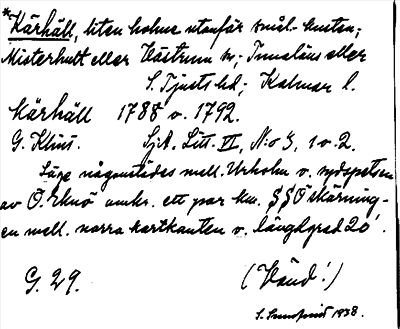 *Kärhäll, liten holme utanför smål. kusten;
Misterhult eller Västrum sn; Tunaläns eller
S. Tjusts hd; Kalmar l.
Kärhäll 1788 o. 1792.
G. Klint. SjA. Litt. VI, N:o 3, 1 o. 2.
Läge någonstädes mell. Urholm o. sydspetsen
av Ö. Eknö omkr. ett par km. §§O skärning-
en mell. norra kartkanten o. längdgrad 20'.
G. 29. (Vänd!)
S. 1938.